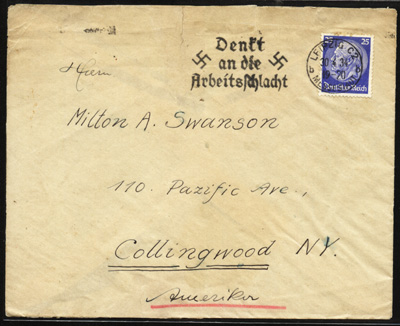 Denkt
an die
Arbeitsschlacht
LEIPZIG C2
25
Deutsches Reich
Herrn
Milton A. Swanson
110. Pazific Ave,
Collingwood NY.
Amerika